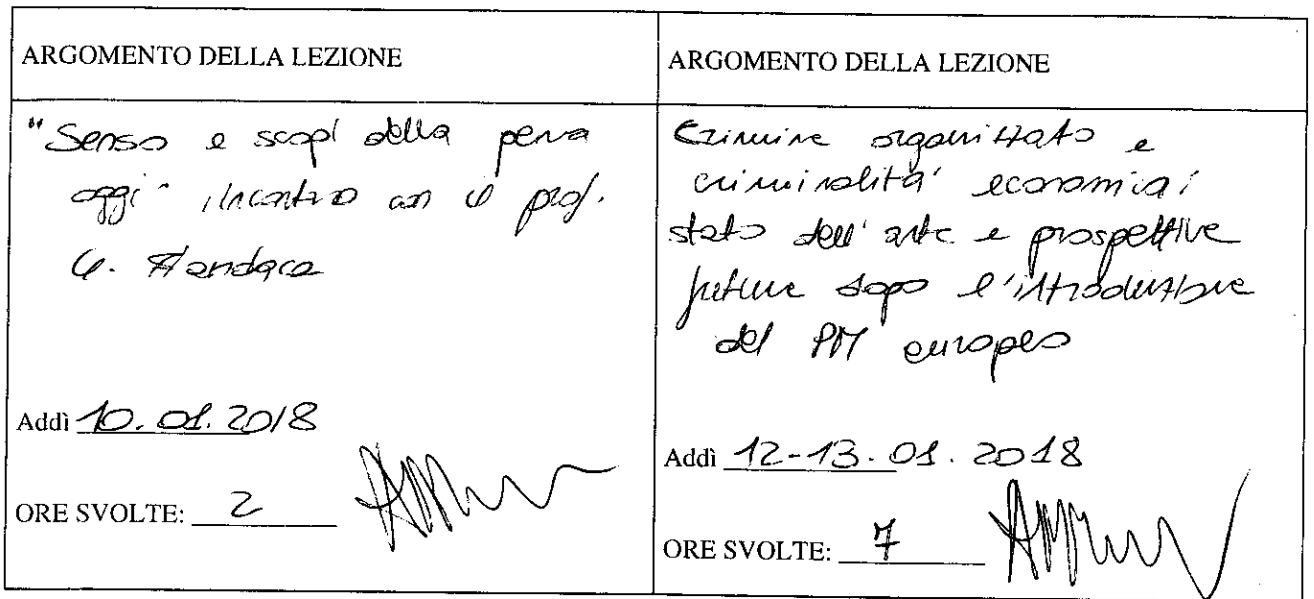 ARGOMENTO DELLA LEZIONE
"Senso e scopi della pena
oggi" incontro con il prof.
G. Fiandaca
Addì 10.01.2018
ORE SVOLTE: 2
ARGOMENTO DELLA LEZIONE
Crimine organizzato e
criminalità economica:
stato dell'arte e prospettive
future dopo l'introduzione
del PM europeo
Addì 12-13.01.2018
ORE SVOLTE: 7